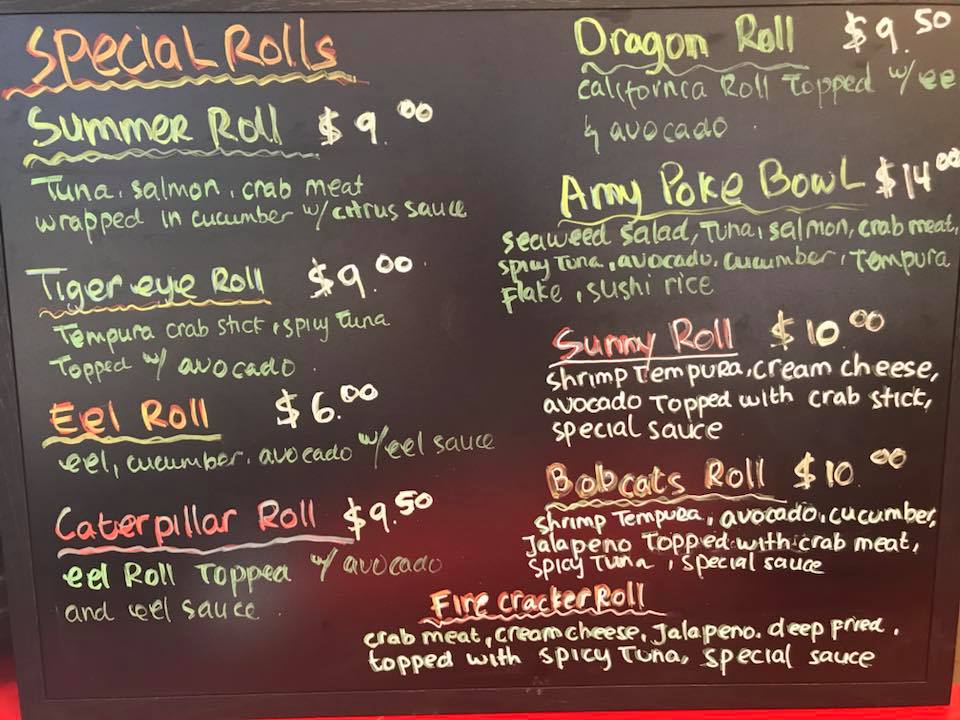 Special Rolls
Summer Roll $9.00
Tuna, salmon, crab meat
wrapped in cucumber w/ citrus sauce
Tiger eye Roll $9.00
Tempura crab stick, spicy tuna
Topped w/ avocado
Eel Roll $6.00
eel, cucumber, avocado w/ eel sauce
Caterpillar Roll $9.50
eel Roll Topped w/ avocado
and eel sauce
Dragon Roll $9.50
california Roll Topped w/ ee
& avocado
Amy Poke Bowl $14.00
seaweed salad, Tuna, salmon, crab meat,
spicy Tuna, avocado, cucumber, Tempura
Flake, sushi rice
Sunny Roll $10.00
shrimp Tempura, cream cheese,
avocado Topped with crab stick,
special sauce
Bobcats Roll $10.00
shrimp Tempura, avocado, cucumber,
Jalapeno Topped with crab meat,
spicy Tuna, special sauce
Fire cracker Roll
crab meat, cream cheese, Jalapeno. deep fried,
topped with spicy Tuna, special sauce